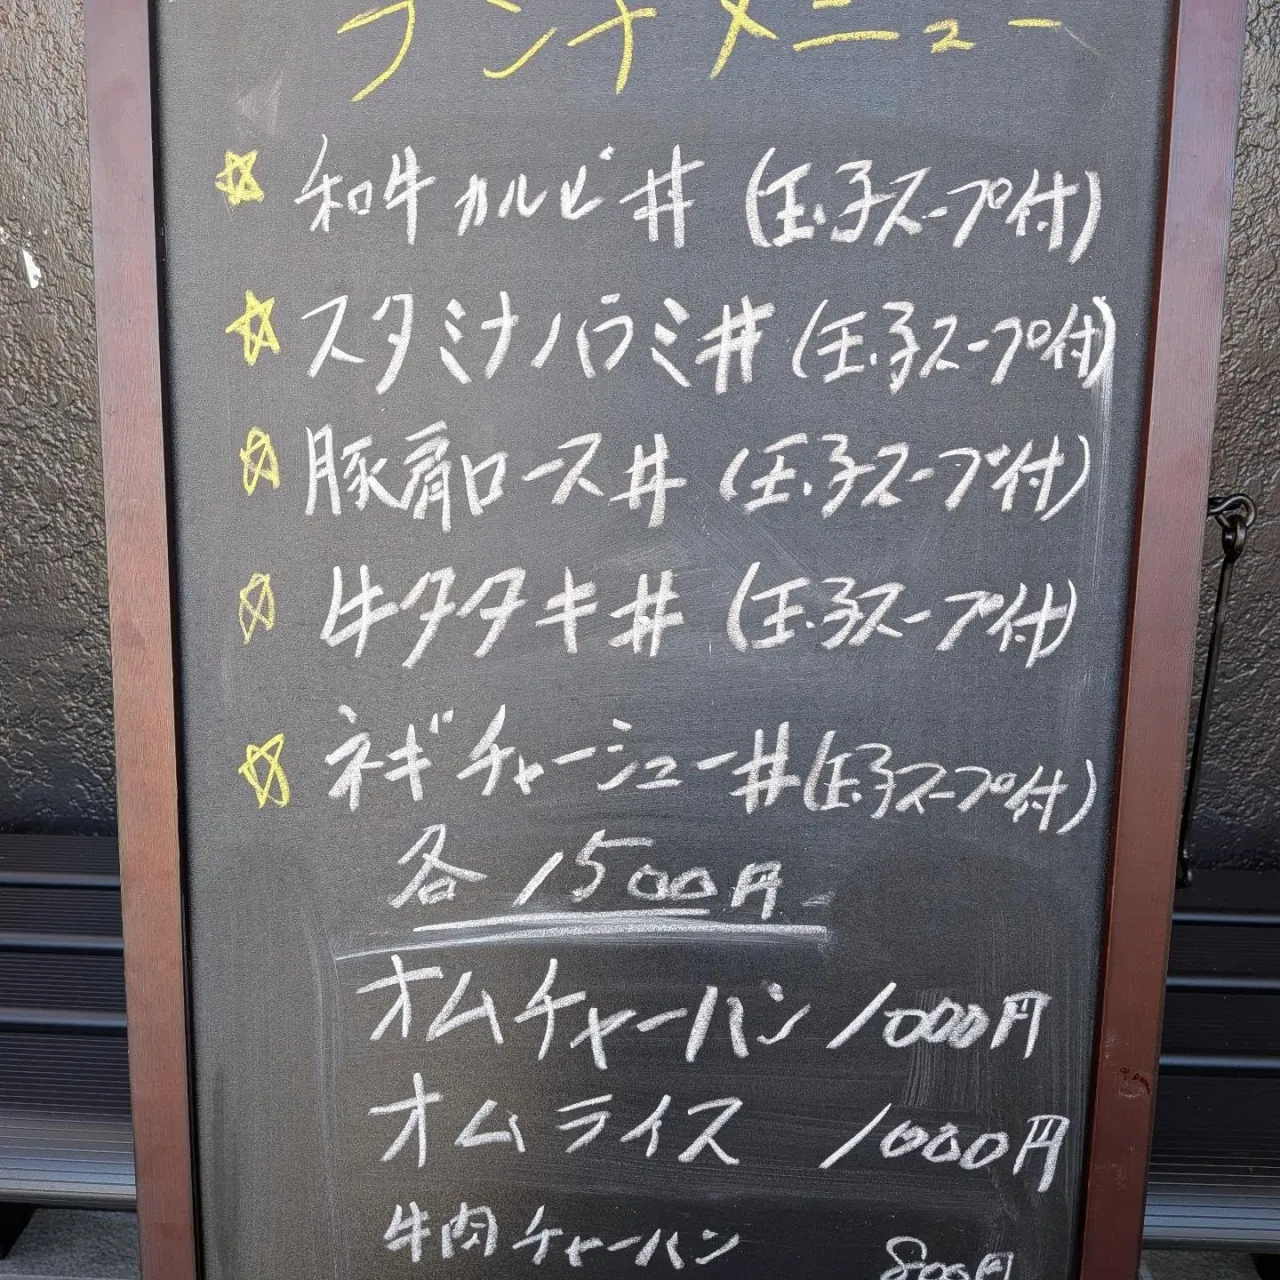 ランチメニュー
☆ 和牛カルビ丼 (玉子スープ付)
☆ スタミナハラミ丼 (玉子スープ付)
☆ 豚肩ロース丼 (玉子スープ付)
☆ 牛タタキ丼 (玉子スープ付)
☆ ネギチャーシュー丼 (玉子スープ付)
各 1500円
オムチャーハン 1000円
オムライス 1000円
牛肉チャーハン 800円